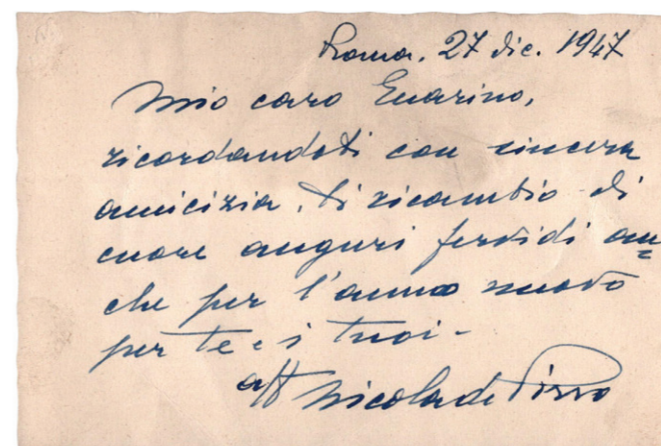 Roma, 27 dic. 1947
Mio caro Guarino,
ricordandoti con sincera
amicizia, ti ricambio di
cuore auguri fervidi an=
che per l'anno nuovo
per te e i tuoi -
aff Nicola de Pirro